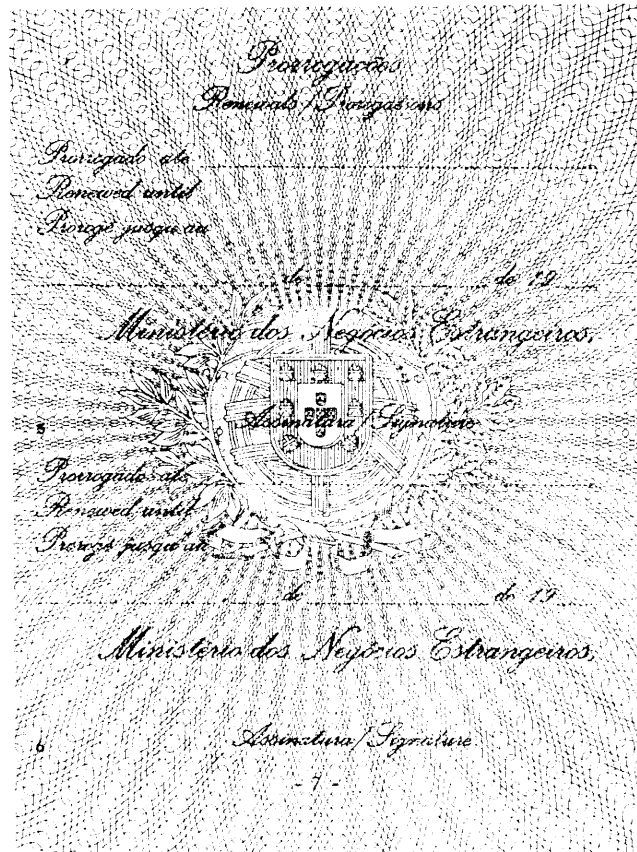 Prorrogações
Renewals / Prorogations
Prorrogado até
Renewed until
Prorogé jusqu'au
de de 19
Ministério dos Negócios Estrangeiros,
5 Assinatura / Signature
Prorrogado até
Renewed until
Prorogé jusqu'au
de de 19
Ministério dos Negócios Estrangeiros,
6 Assinatura / Signature
- 7 -